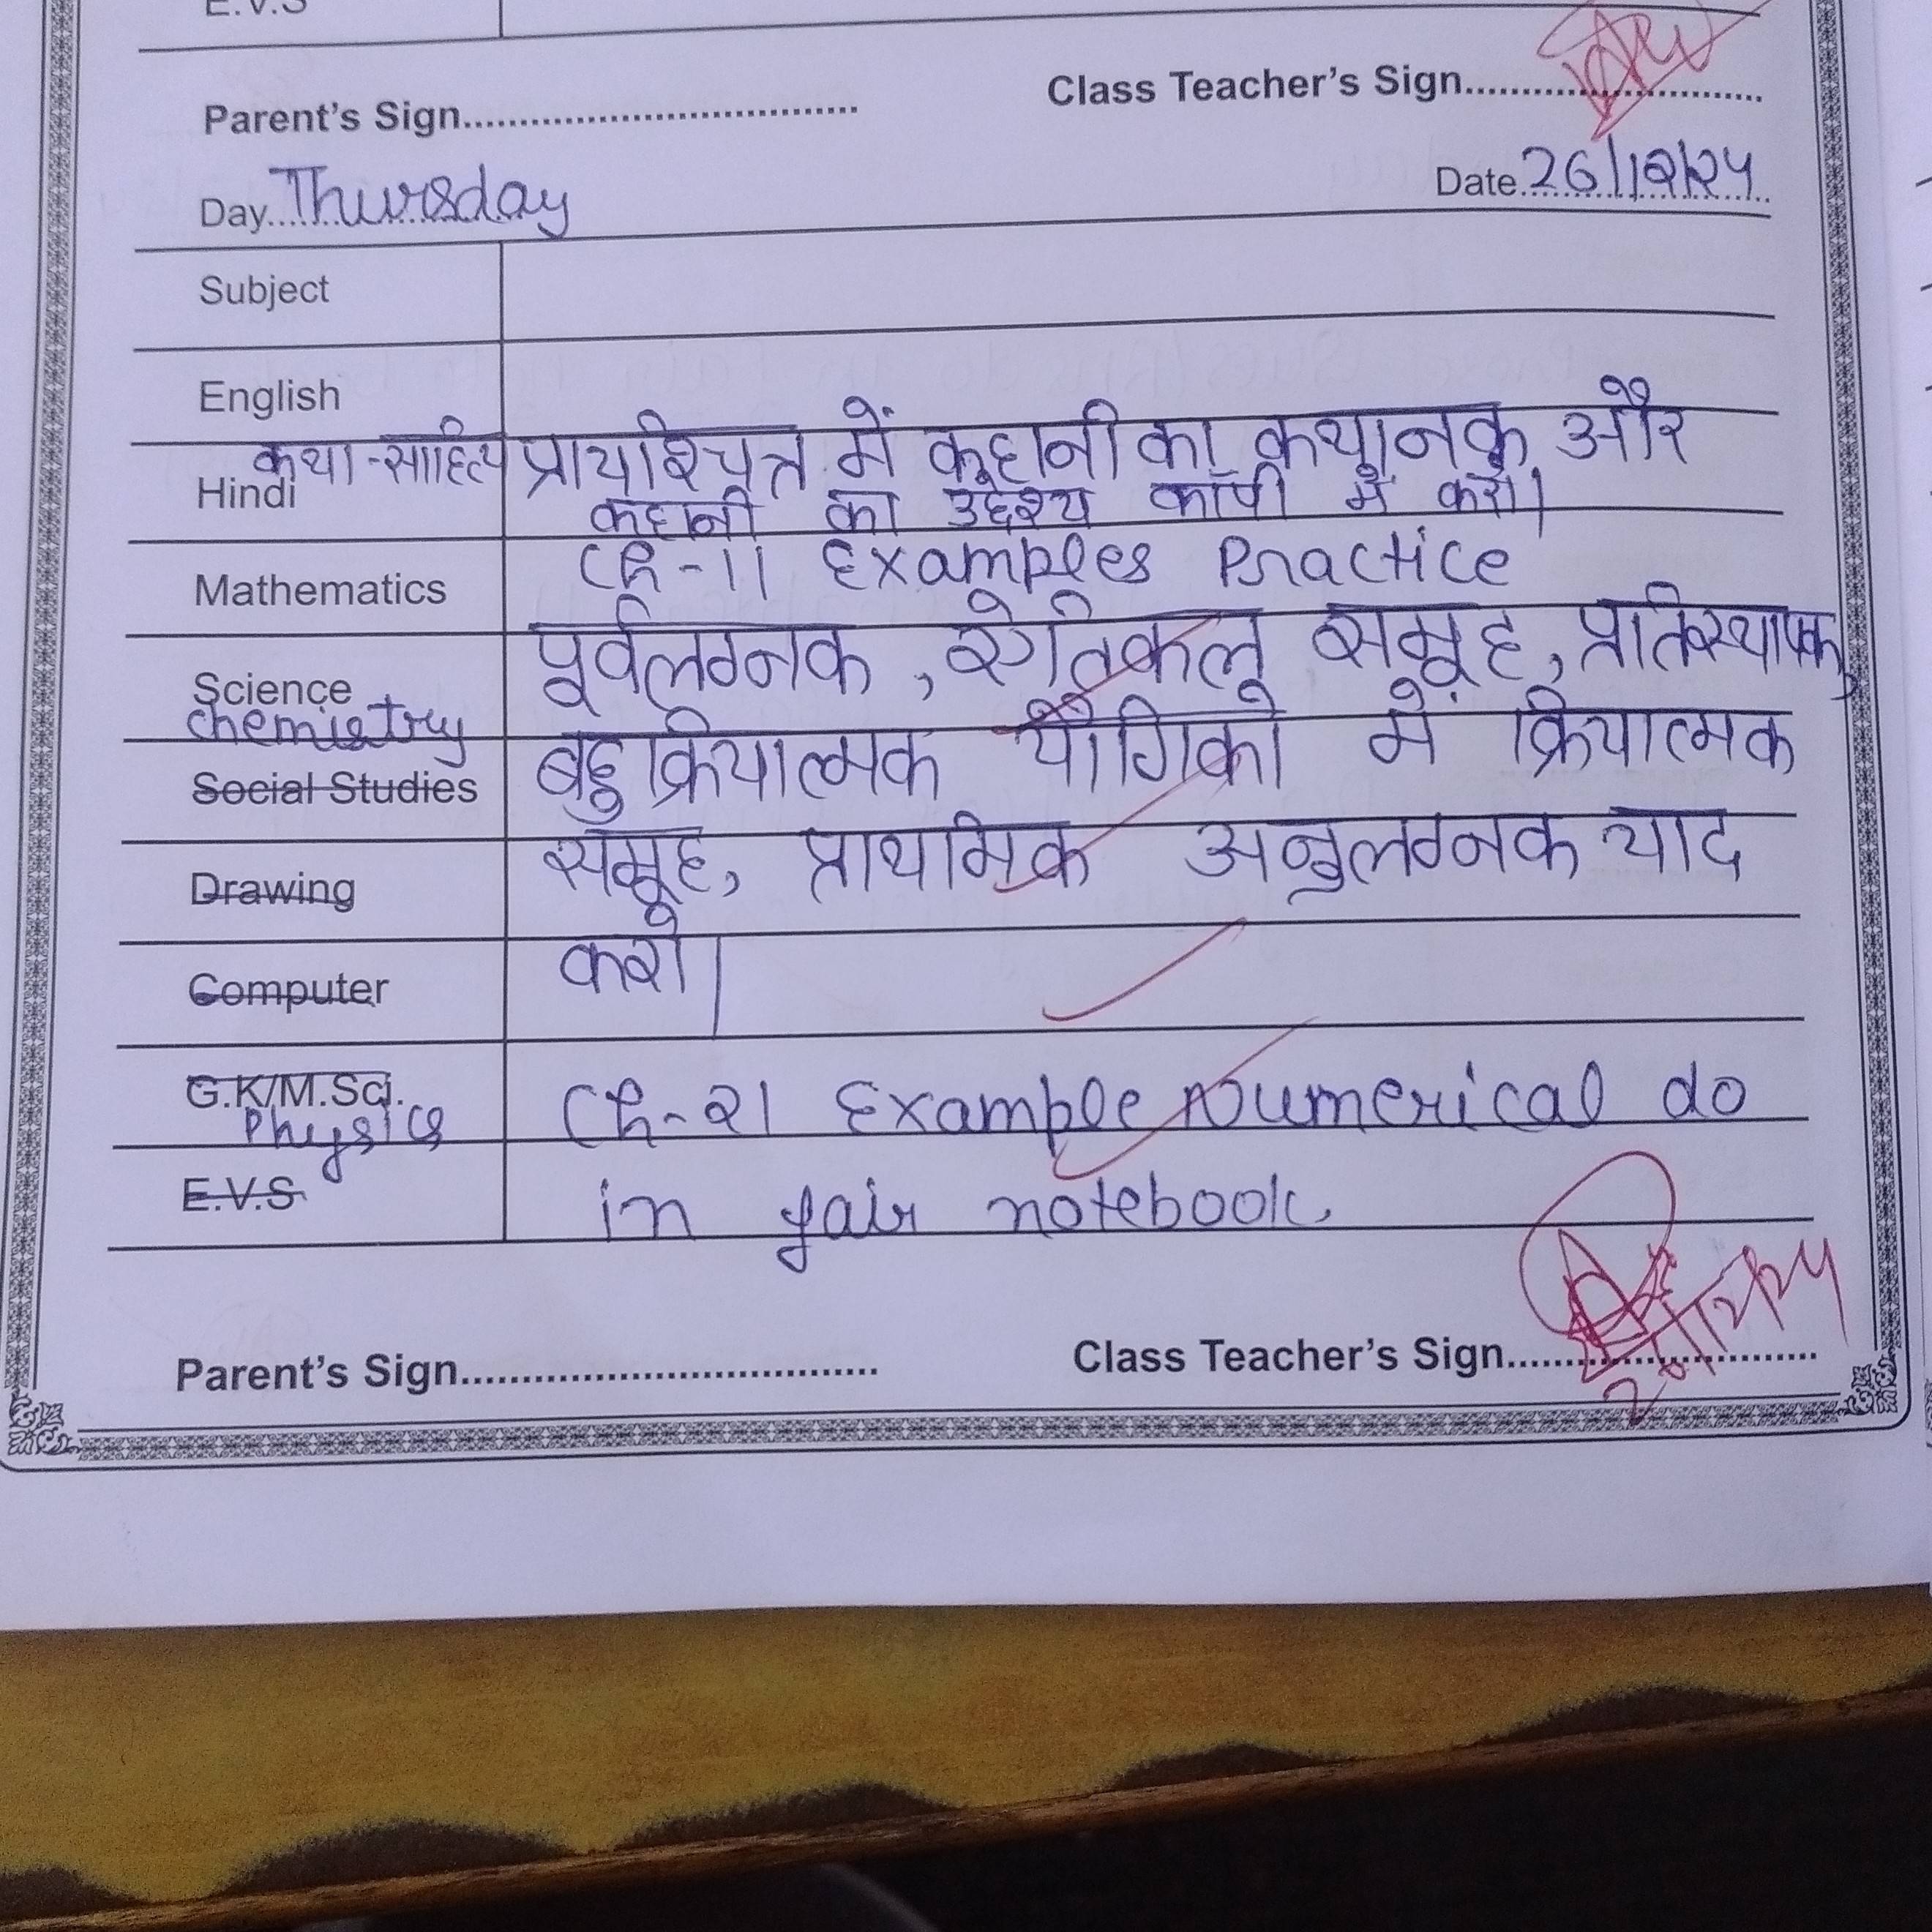 E.V.S
Parent's Sign.................................... Class Teacher's Sign..............................
Day Thursday Date 26/12/24
Subject
English
कथा-साहित्य प्रायश्चित्त में कहानी का कथानक और
Hindi कहानी का उद्देश्य कॉपी में करो।
Mathematics Ch-11 Examples Practice
Science पूर्वलग्नक, समूह, प्रतिस्थापक,
chemistry
Social Studies बहुक्रियात्मक यौगिको में क्रियात्मक
Drawing समूह, प्राथमिक अनुलग्नक याद
Computer करो।
G.K/M.Sci. Ch-21 Example Numerical do
Physics
E.V.S in fair notebook.
Parent's Sign.................................... Class Teacher's Sign..............................